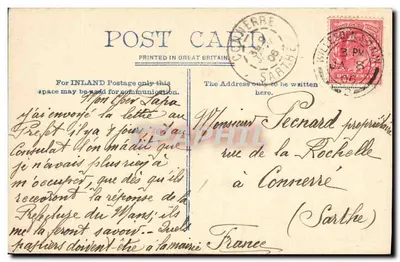 POST CARD
PRINTED IN GREAT BRITAIN
For INLAND Postage only this
space may be used for communication.
The Address only to be written
here.
CONNERRÉ
SARTHE
08
WILLESDEN
PM
Mon cher Papa
j'ai envoyé la lettre au
Préfet il y a 7 jours. Au
Consulat on m'a dit que
je n'avais plus rien à
m'occuper, que dès qu'ils
recevront la réponse de la
Préfecture du Mans, ils
me la feront savoir. — Quels
papiers doivent-être à la mairie
Monsieur Pecnard propriétaire
rue de la Rochelle
à Connerré
(Sarthe)
France